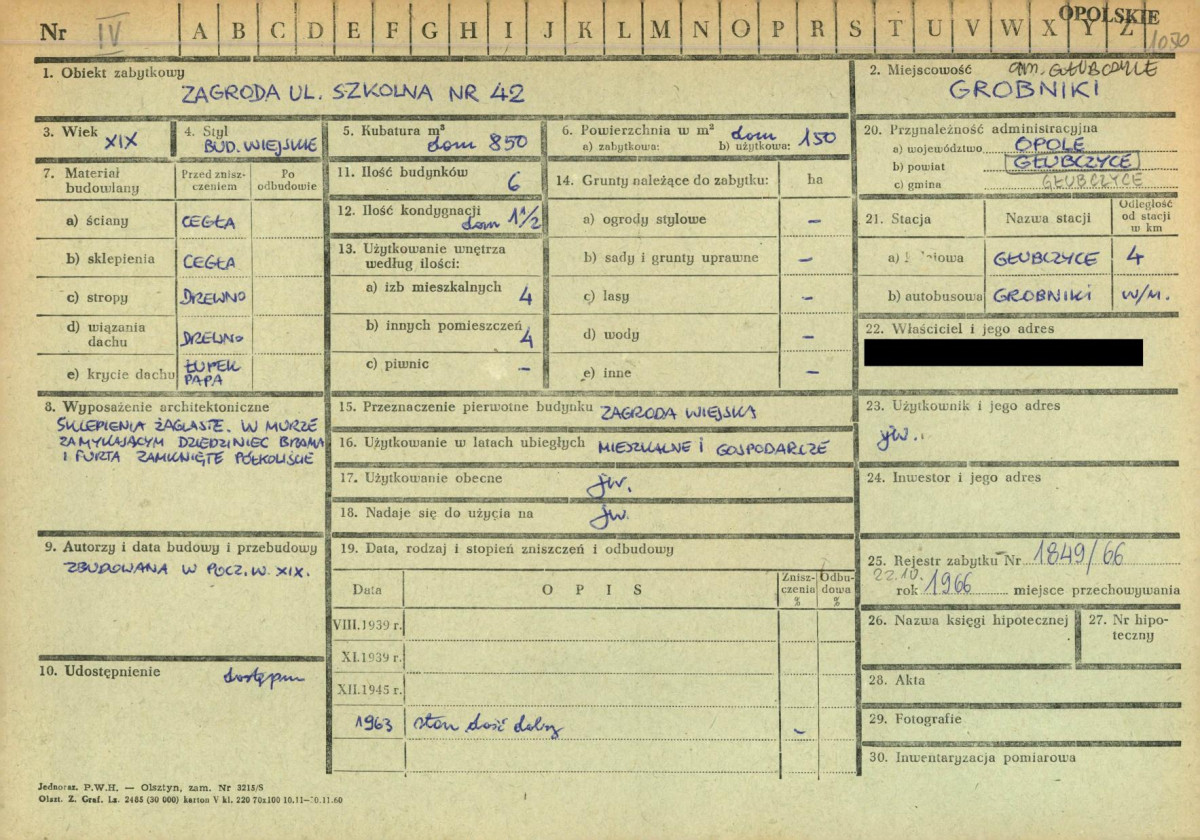 Nr IV A B C D E F G H I J K L M N O P R S T U V W X Y Z OPOLSKIE
1050
1. Obiekt zabytkowy
ZAGRODA UL. SZKOLNA NR 42
2. Miejscowość gm. GŁUBCZYCE
GROBNIKI
3. Wiek
XIX
4. Styl
BUD. WIEJSKIE
5. Kubatura m³
dom 850
6. Powierzchnia w m² dom
a) zabytkowa: b) użytkowa: 150
7. Materiał budowlany
Przed zniszczeniem
Po odbudowie
a) ściany CEGŁA
b) sklepienia CEGŁA
c) stropy DREWNO
d) wiązania dachu DREWNO
e) krycie dachu ŁUPEK PAPA
8. Wyposażenie architektoniczne
SKLEPIENIA ŻAGLASTE. W MURZE
ZAMYKAJĄCYM DZIEDZINIEC BRAMA
I FURTA ZAMKNIĘTE PÓŁKOLIŚCIE
9. Autorzy i data budowy i przebudowy
ZBUDOWANA W POCZ. W. XIX.
10. Udostępnienie dostępna
11. Ilość budynków 6
12. Ilość kondygnacji
dom 1 1/2
13. Użytkowanie wnętrza według ilości:
a) izb mieszkalnych 4
b) innych pomieszczeń 4
c) piwnic –
14. Grunty należące do zabytku: ha
a) ogrody stylowe –
b) sady i grunty uprawne –
c) lasy –
d) wody –
e) inne –
15. Przeznaczenie pierwotne budynku ZAGRODA WIEJSKA
16. Użytkowanie w latach ubiegłych MIESZKALNE I GOSPODARCZE
17. Użytkowanie obecne jw.
18. Nadaje się do użycia na jw.
19. Data, rodzaj i stopień zniszczeń i odbudowy
Data OPIS Zniszczenia % Odbudowa %
VIII.1939 r.
XI.1939 r.
XII.1945 r.
1963 stan dość dobry –
20. Przynależność administracyjna
a) województwo OPOLE
b) powiat GŁUBCZYCE
c) gmina GŁUBCZYCE
21. Stacja Nazwa stacji Odległość od stacji w km
a) GŁUBCZYCE 4
b) autobusowa GROBNIKI W/M.
22. Właściciel i jego adres
23. Użytkownik i jego adres
jw.
24. Inwestor i jego adres
25. Rejestr zabytku Nr 1849/66
22.IV.
rok 1966 miejsce przechowywania
26. Nazwa księgi hipotecznej
27. Nr hipoteczny
28. Akta
29. Fotografie
30. Inwentaryzacja pomiarowa
Jednoraz. P.W.H. — Olsztyn, zam. Nr 3215/S
Olszt. Z. Graf. Lz. 2485 (30 000) karton V kl. 220 70x100 10.11–30.11.60